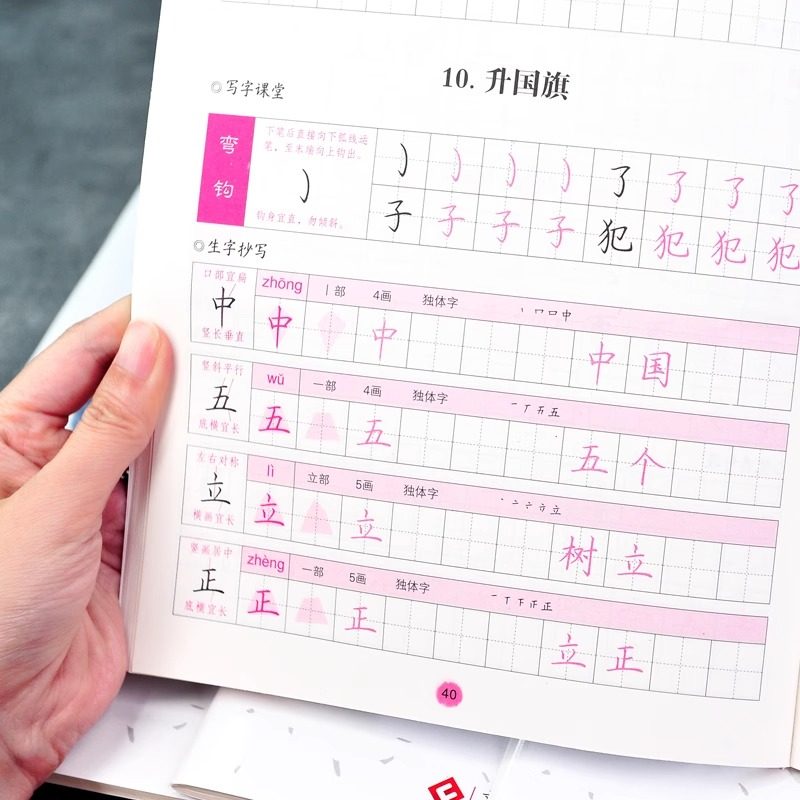 10. 升国旗
◎写字课堂
弯钩
下笔后直接向下弧线运
笔,至末端向上钩出。
钩身宜直,勿倾斜。
㇁ ㇁ ㇁ ㇁ 了 了 了 了
子 子 子 子 犯 犯 犯 犯
◎生字抄写
口部宜扁
中
竖长垂直
zhōng 丨部 4画 独体字 丶 冂 口 中
中 中 中 国
竖斜平行
五
底横宜长
wǔ 一部 4画 独体字 一 丆 五
五 五 五 个
左右对称
立
横画宜长
lì 立部 5画 独体字 立
立 立 树 立
竖画居中
正
底横宜长
zhèng 一部 5画 独体字 一 丅 下 正
正 正 立 正
40